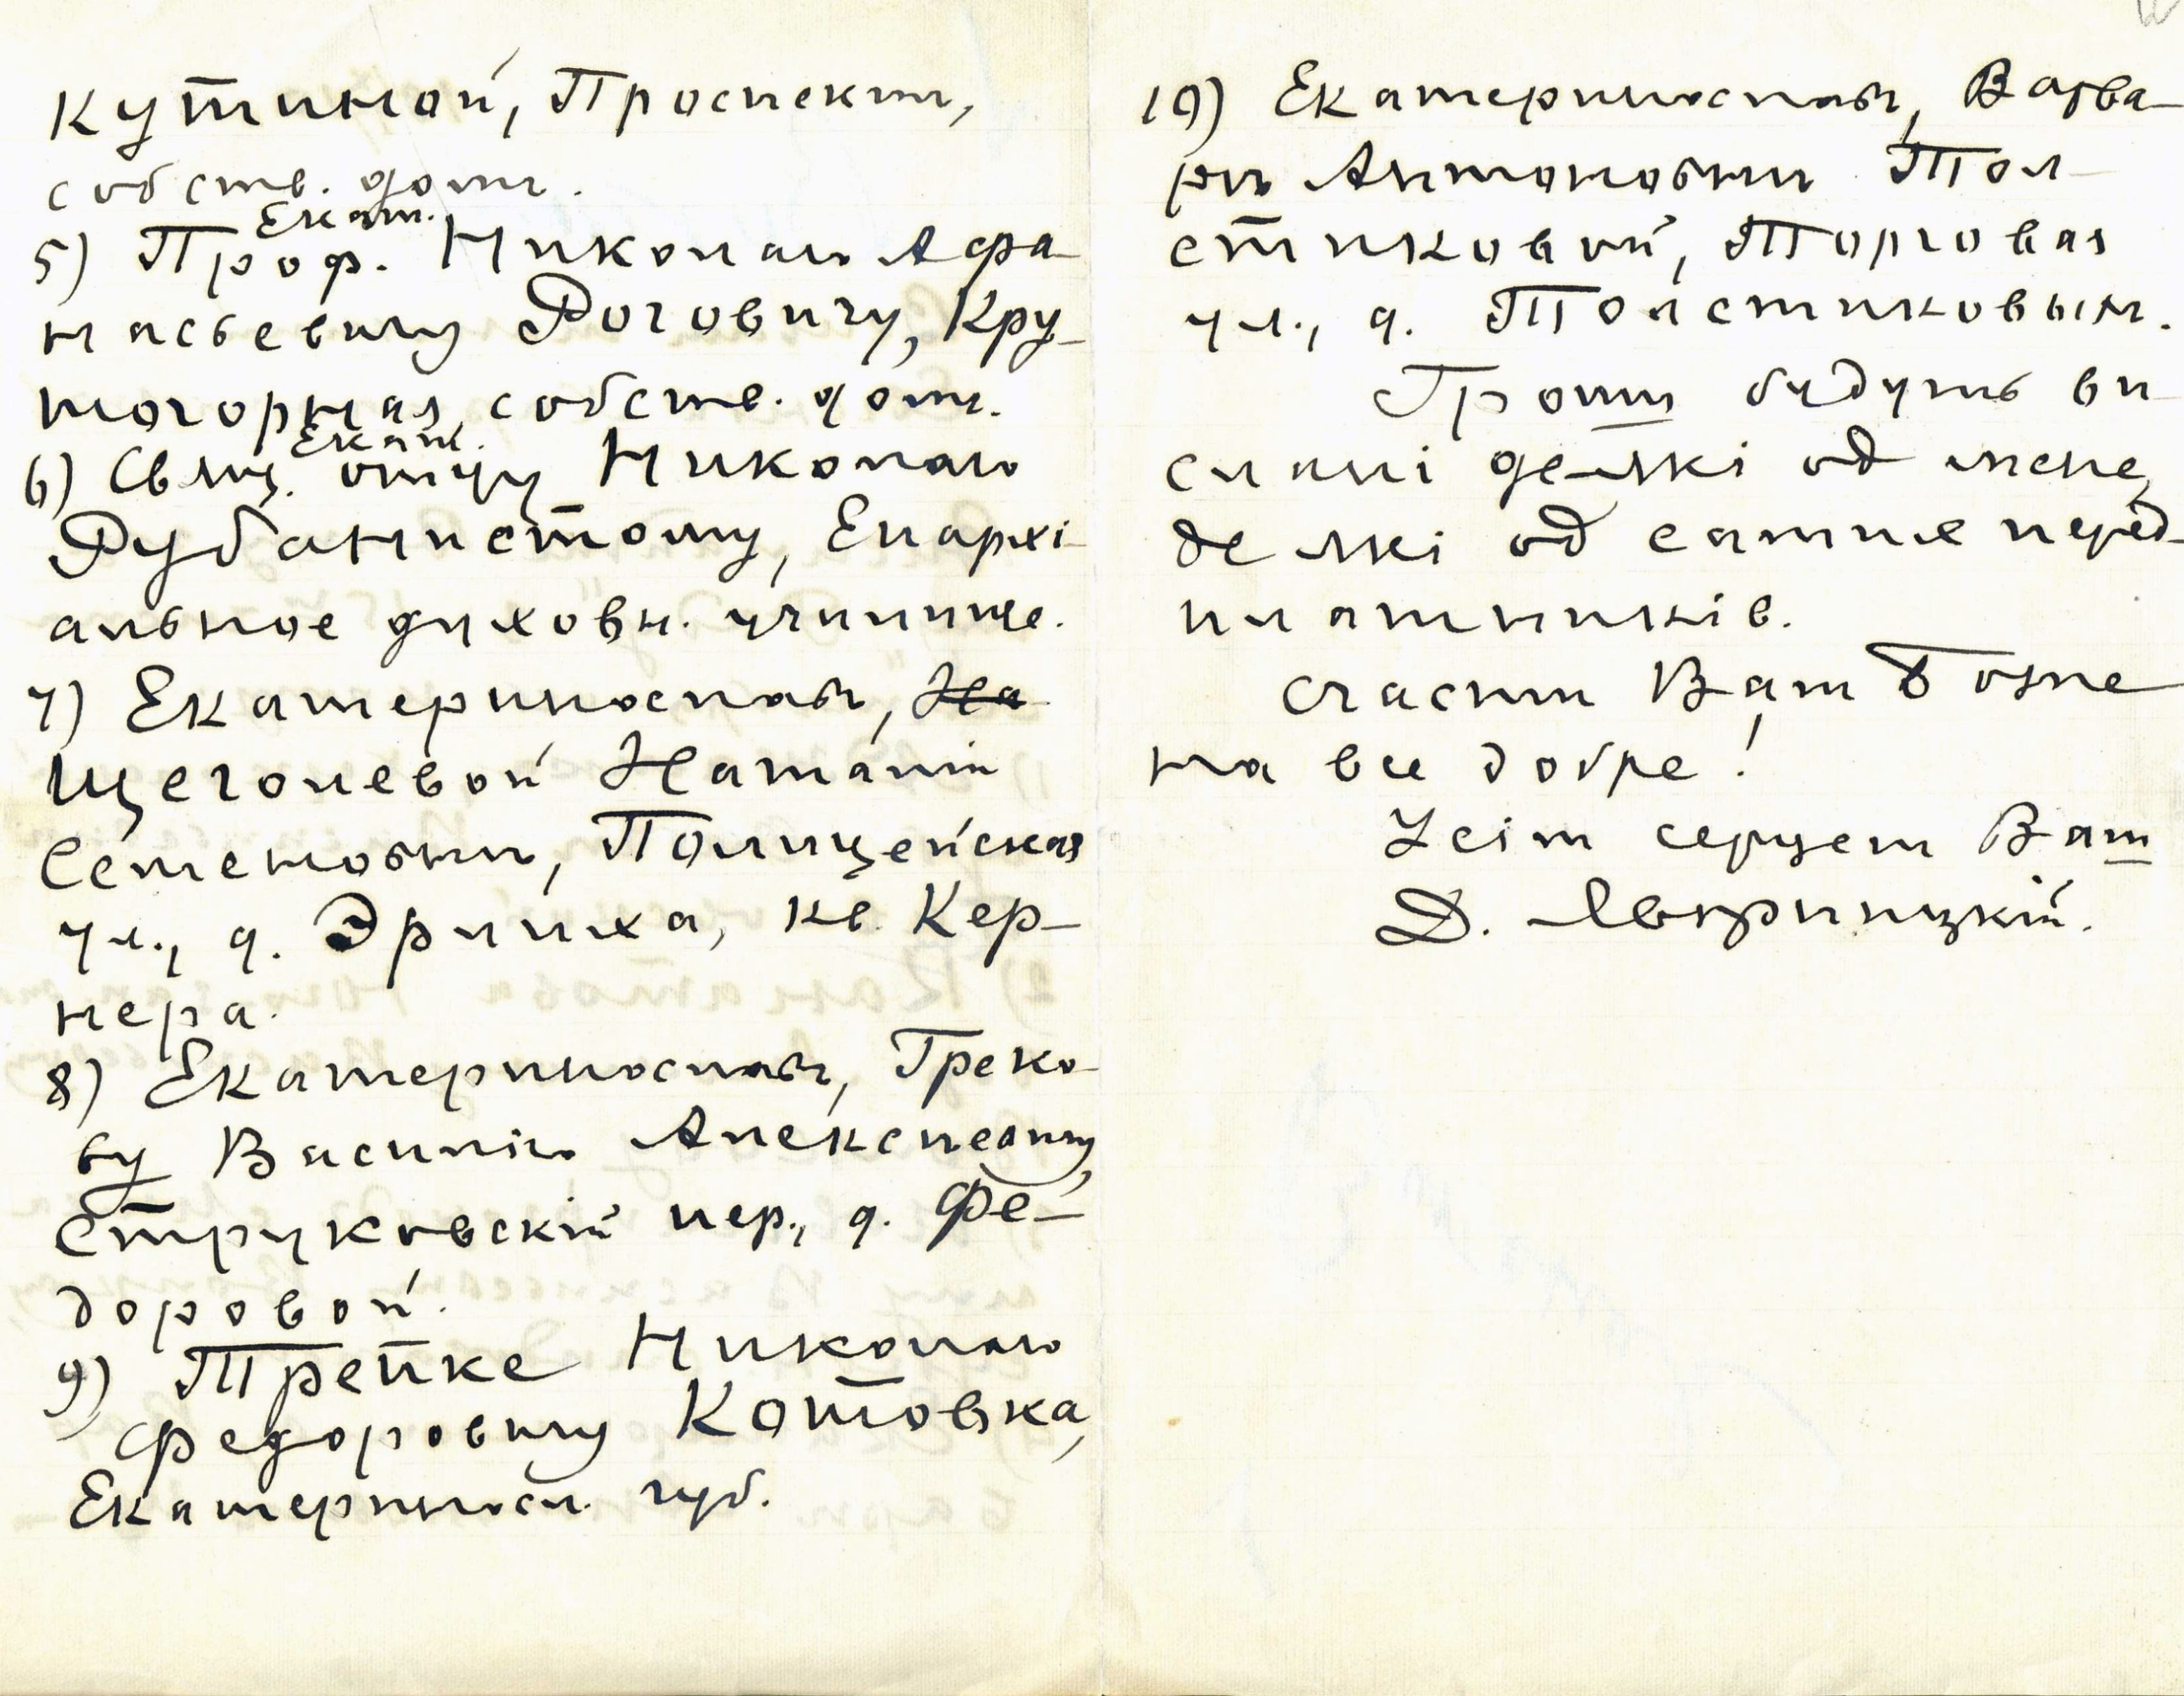 Кутиной, Проспектъ,
собств. домъ.
Екат.
5) Проф. Николаю Афа-
насьевичу Роговичу, Кру-
тогорная, собств. домъ.
Екат.
6) Свящ. отцу Николаю
Рубанистому, Епархі-
альное духовн. училище.
7) Екатеринославъ, На
Щеголевой Наталіи
Семеновни, Полицейская
ул., д. Эрлиха, кв. Кер-
нера.
8) Екатеринославъ, Греко-
ву Василію Алексѣевичу,
Струковскій пер., д. Фе-
доровой.
9) Трепке Николаю
Федоровичу Котовка,
Екатериносл. губ.
10) Екатеринославъ, Варва-
рѣ Антоновни Тол-
стиковой, Торговая
ул., д. Толстиковыхъ.
Гроши будуть ви-
слані деякі од мене,
деякі од самих перед-
платників.
Счасти Вам Боже
на все добре!
Усім серцем Ваш
Д. Яворницкій.